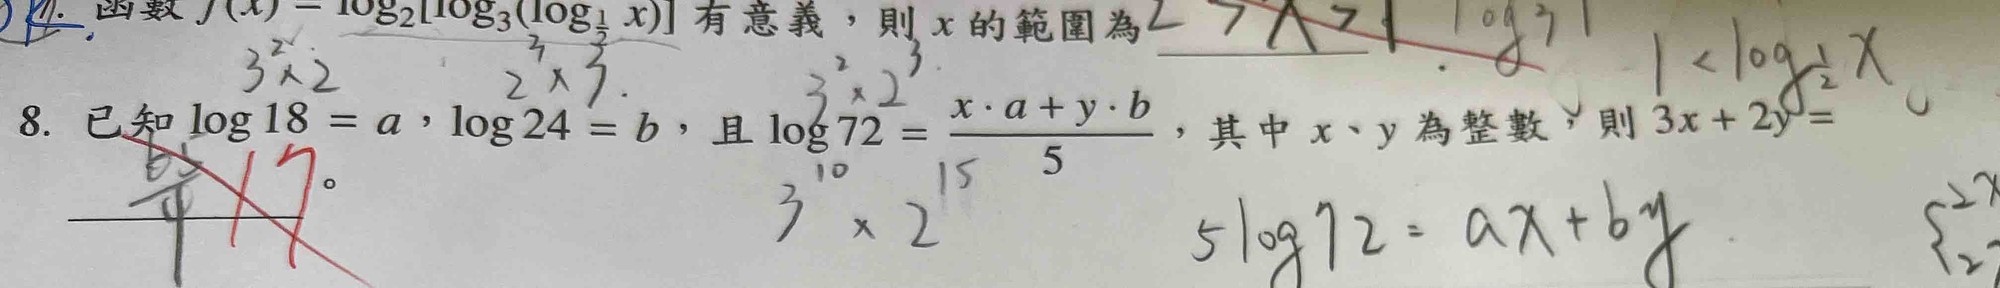 函數 f(x) = log₂[log₃(log_{1/2} x)] 有意義，則 x 的範圍為 2 > x > 1 log₃1
1 < log_{1/2} x
3² × 2   2³ × 3   3² × 2³
8. 已知 log 18 = a，log 24 = b，且 log 72 = \frac{x · a + y · b}{5}，其中 x、y 為整數，則 3x + 2y =
17。
3¹⁰ × 2¹⁵
5 log 72 = ax + by